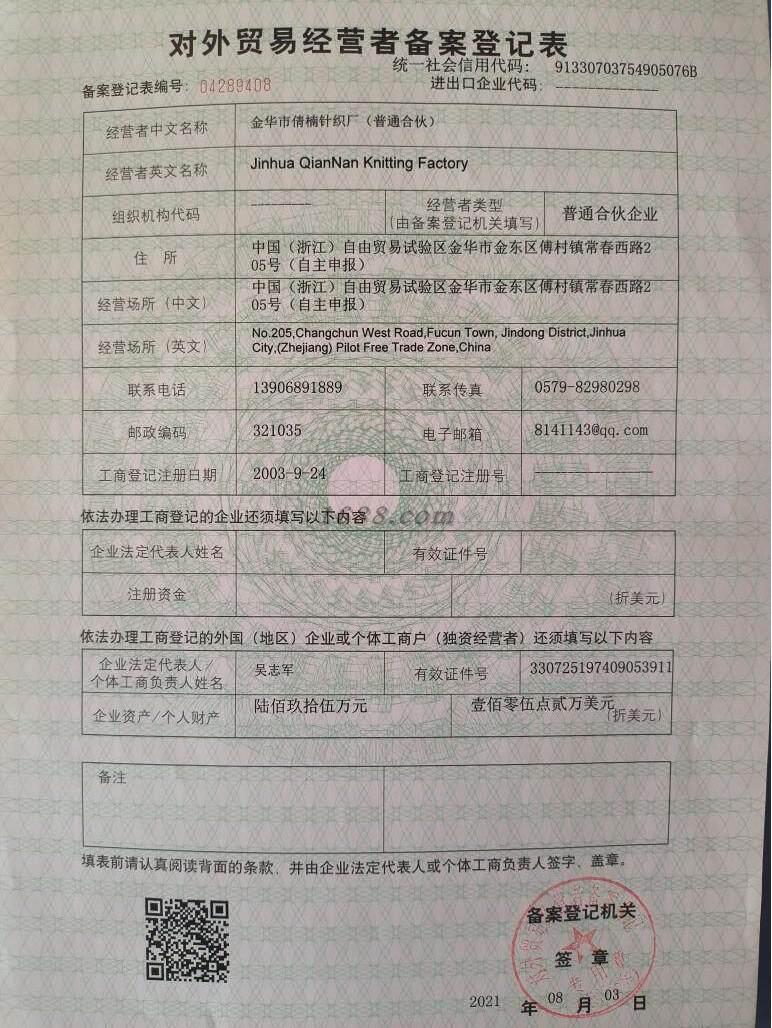 对外贸易经营者备案登记表
统一社会信用代码: 91330703754905076B
备案登记表编号: 04289408
进出口企业代码: --------------
经营者中文名称 金华市倩楠针织厂（普通合伙）
经营者英文名称 Jinhua QianNan Knitting Factory
组织机构代码 --------- 经营者类型 普通合伙企业
(由备案登记机关填写)
住 所 中国（浙江）自由贸易试验区金华市金东区傅村镇常春西路2
05号（自主申报）
经营场所（中文） 中国（浙江）自由贸易试验区金华市金东区傅村镇常春西路2
05号（自主申报）
经营场所（英文） No.205,Changchun West Road,Fucun Town, Jindong District,Jinhua
City,(Zhejiang) Pilot Free Trade Zone,China
联系电话 13906891889 联系传真 0579-82980298
邮政编码 321035 电子邮箱 8141143@qq.com
工商登记注册日期 2003-9-24 工商登记注册号 ------------------
1688.com
依法办理工商登记的企业还须填写以下内容
企业法定代表人姓名 有效证件号
注册资金 (折美元)
依法办理工商登记的外国（地区）企业或个体工商户（独资经营者）还须填写以下内容
企业法定代表人/
个体工商负责人姓名 吴志军 有效证件号 330725197409053911
企业资产/个人财产 陆佰玖拾伍万元 壹佰零伍点贰万美元 (折美元)
备注
填表前请认真阅读背面的条款，并由企业法定代表人或个体工商负责人签字、盖章。
备案登记机关
签 章
2021 年 08 月 03 日